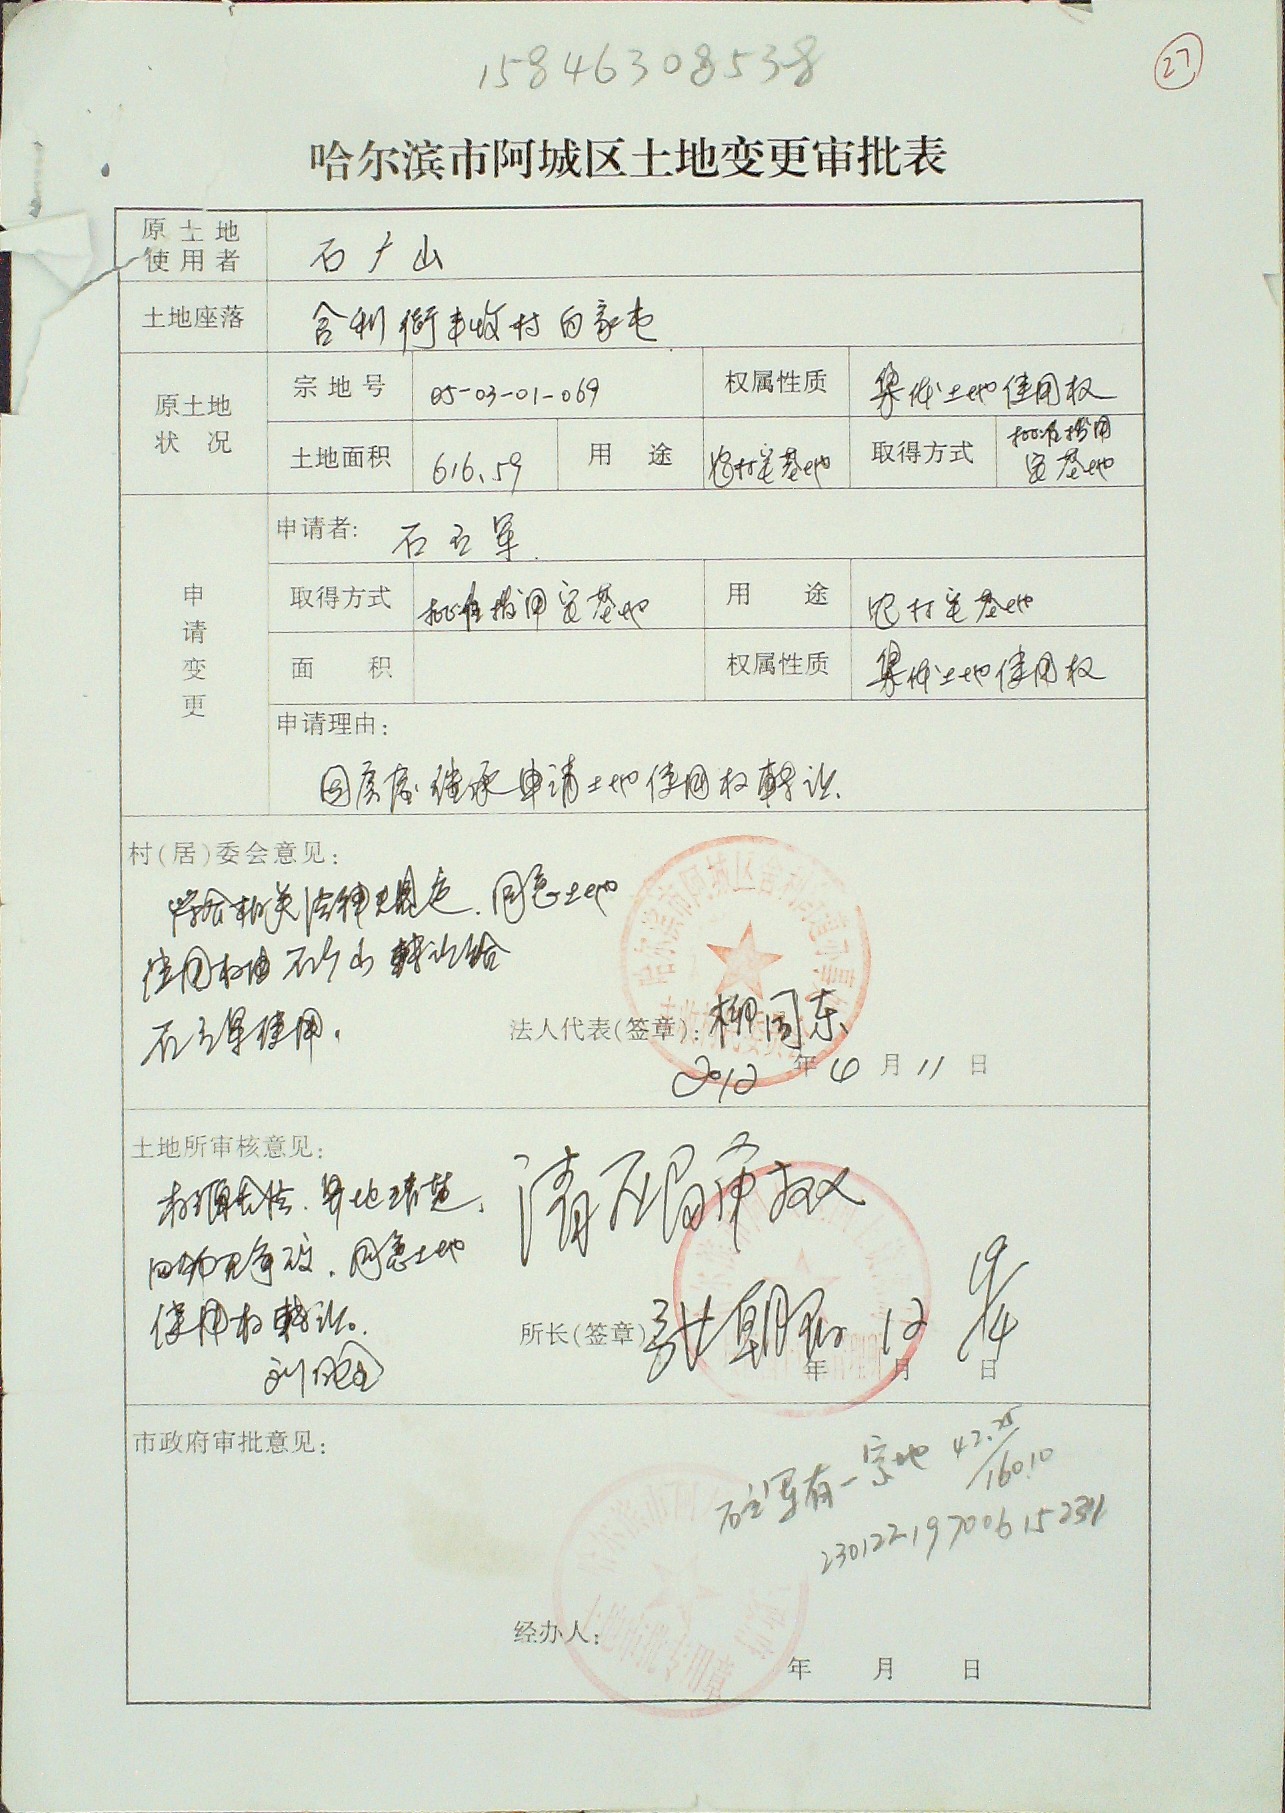 15846308538
27
哈尔滨市阿城区土地变更审批表
原土地
使用者
石广山
土地座落
舍利街丰收村白家屯
原土地
状况
宗地号
05-03-01-069
权属性质
集体土地使用权
土地面积
616.59
用途
农村宅基地
取得方式
批准拨用
宅基地
申请变更
申请者:
石立军
取得方式
批准拨用宅基地
用途
农村宅基地
面积
权属性质
集体土地使用权
申请理由:
因房屋继承申请土地使用权转让.
村(居)委会意见:
符合相关法律规定.同意土地
使用权由石广山转让给
石立军使用.
法人代表(签章):
2012年4月11日
土地所审核意见:
权源合法.界地清楚.
四邻无争议.同意土地
使用权转让.
所长(签章)
年月日
市政府审批意见:
石立军有一宗地
160.10
经办人:
年月日